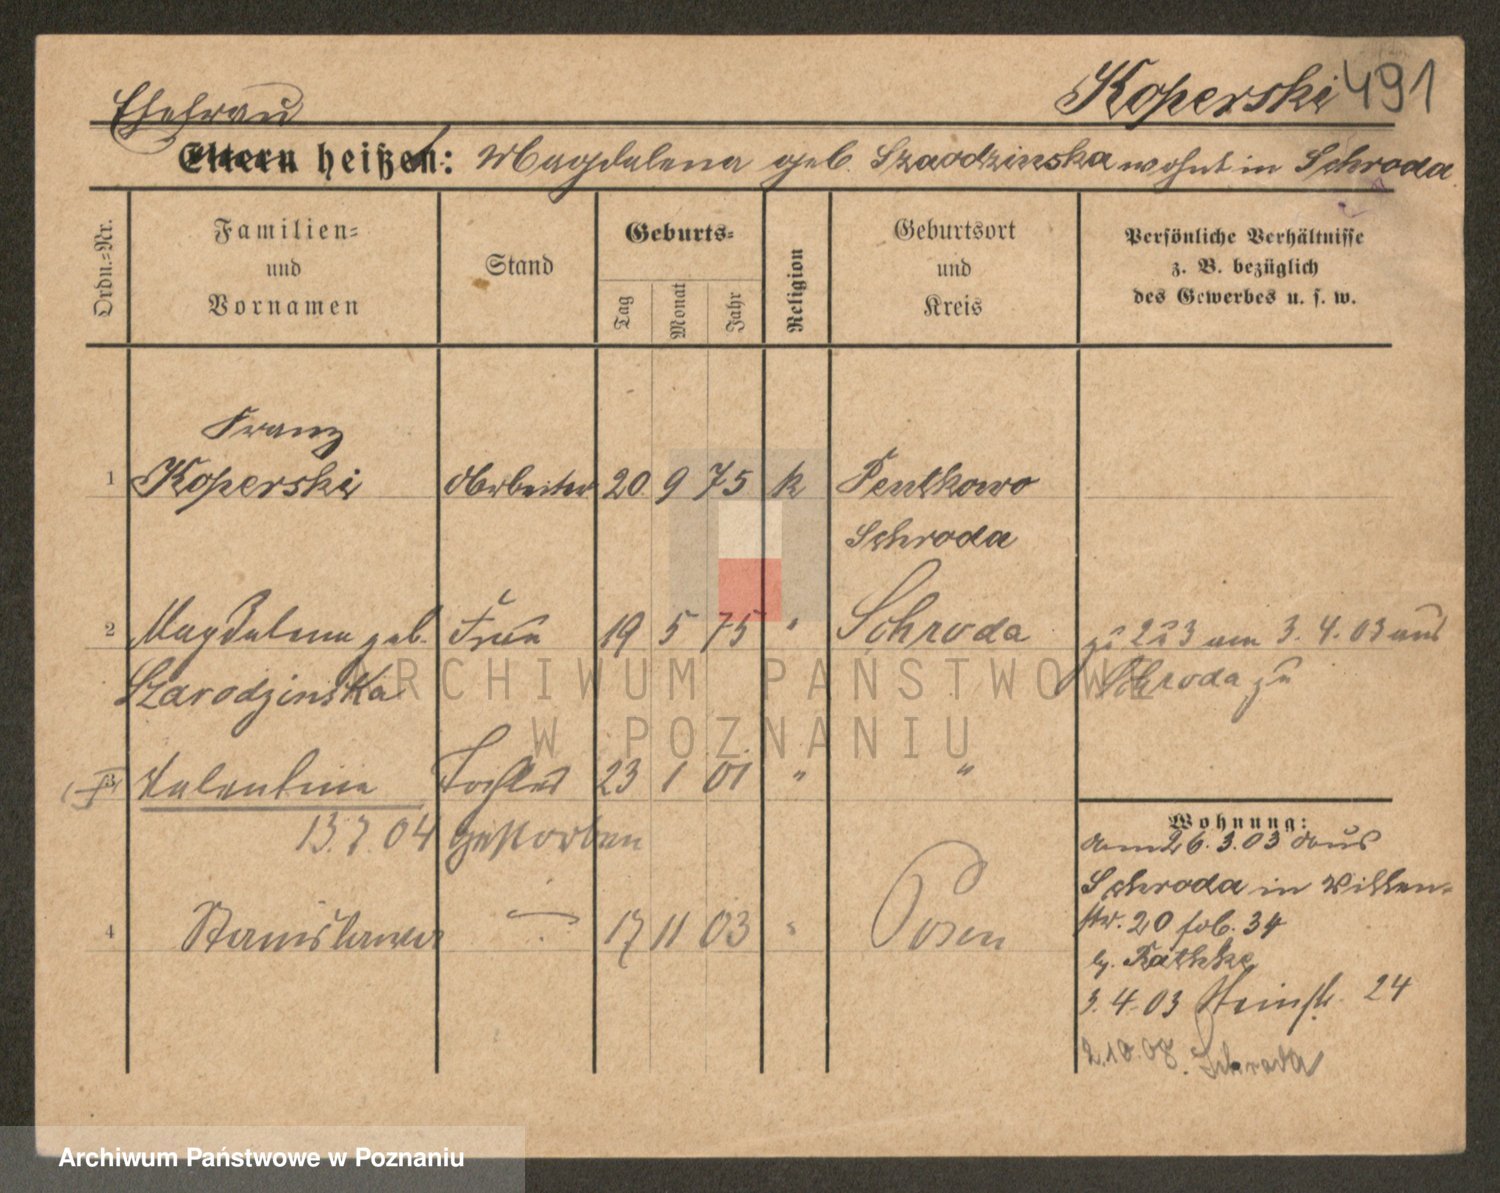 Koperski 491
Ehefrau
Eltern heißen: Magdalena geb. Szarodzinska wohnt in Schroda
Ordn.-Nr.
Familien-
und
Vornamen
Stand
Geburts-
Tag
Monat
Jahr
Religion
Geburtsort
und
Kreis
Persönliche Verhältnisse
z. B. bezüglich
des Gewerbes u. s. w.
Franz
1 Koperski Arbeiter 20 9 75 k Pentkowo
Schroda
2 Magdalena geb. Frau 19 5 75 " Schroda zu 2 u 3 am 3. 4. 03 aus
Szarodzinska Schroda zu
3 Valentine Tochter 23 1 01 " "
13.7.04 gestorben
4 Stanislaus 17 11 03 " Posen
Wohnung:
am 26.3.03 aus
Schroda in
str. 20 fob. 34
b. Rathke
3.4.03 Steinstr. 24
2.10.08. Schroda
ARCHIWUM PAŃSTWOWE
W POZNANIU
Archiwum Państwowe w Poznaniu